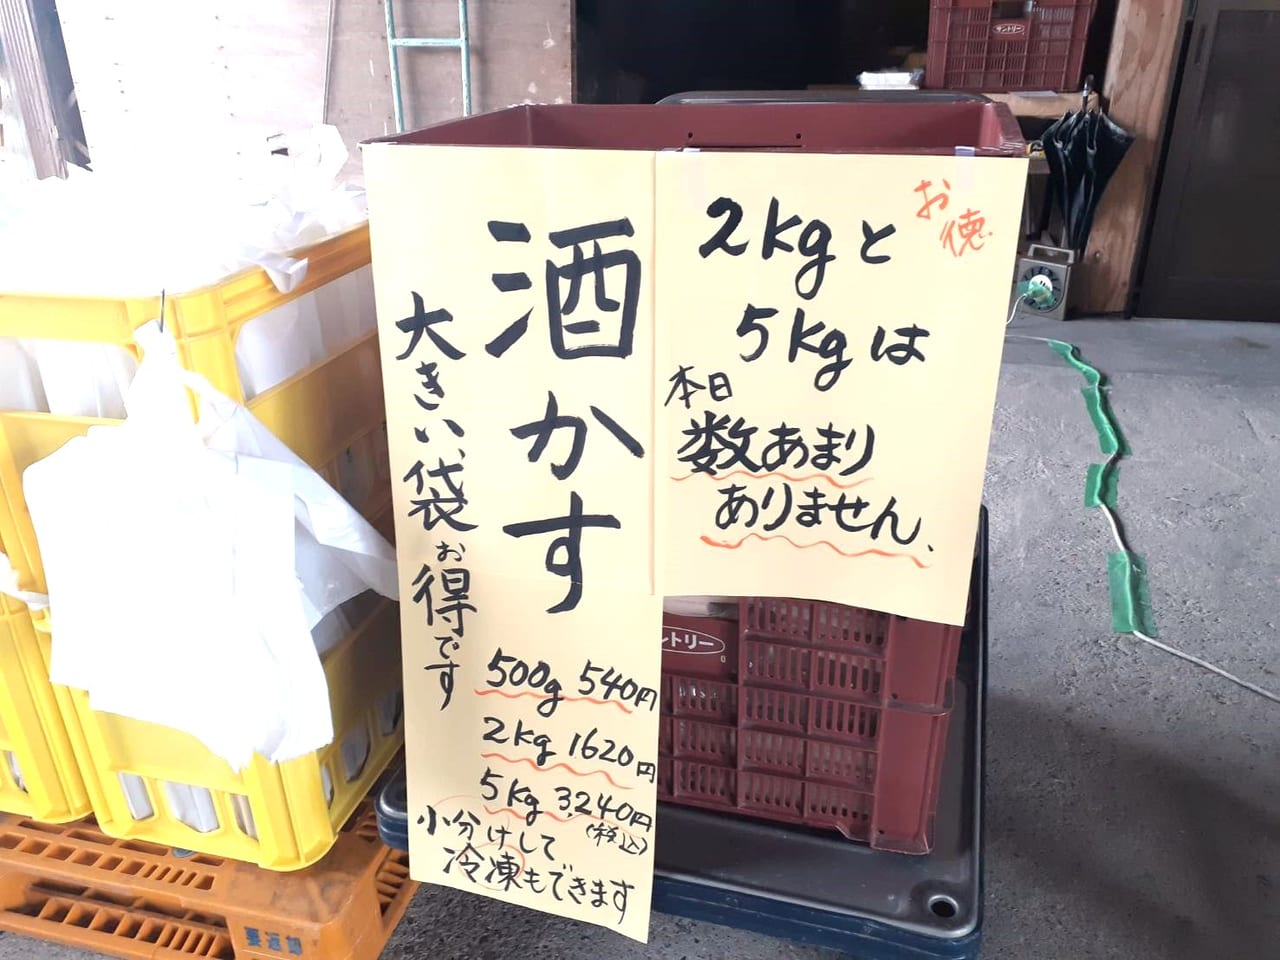 酒かす
大きい袋お得です
500g 540円
2kg 1620円
5kg 3,240円
(税込)
小分けして
冷凍もできます
お徳
2kgと
5kgは
本日
数あまり
ありません、
サントリー
ントリー
要返却